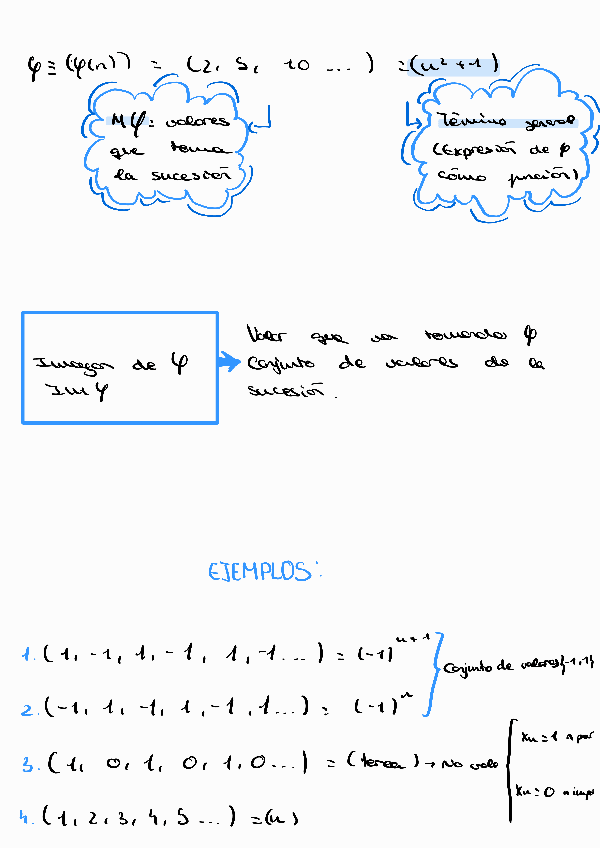 φ ≡ (φ(n)) = (2, 5, 10 ...) = (n² + 1)
Mφ: valores
que toma
la sucesión
Término general
(Expresión de φ
cómo función)
Imagen de φ
Imφ
Valor que va tomando φ
Conjunto de valores de la
sucesión.
EJEMPLOS:
1. (1, -1, 1, -1, 1, -1...) = (-1)ⁿ⁺¹
2. (-1, 1, -1, 1, -1, 1...) = (-1)ⁿ
Conjunto de valores {-1,1}
3. (1, 0, 1, 0, 1, 0...) = (tarea) → No vale
xn = 1 n par
xn = 0 n impar
4. (1, 2, 3, 4, 5 ...) = (n)